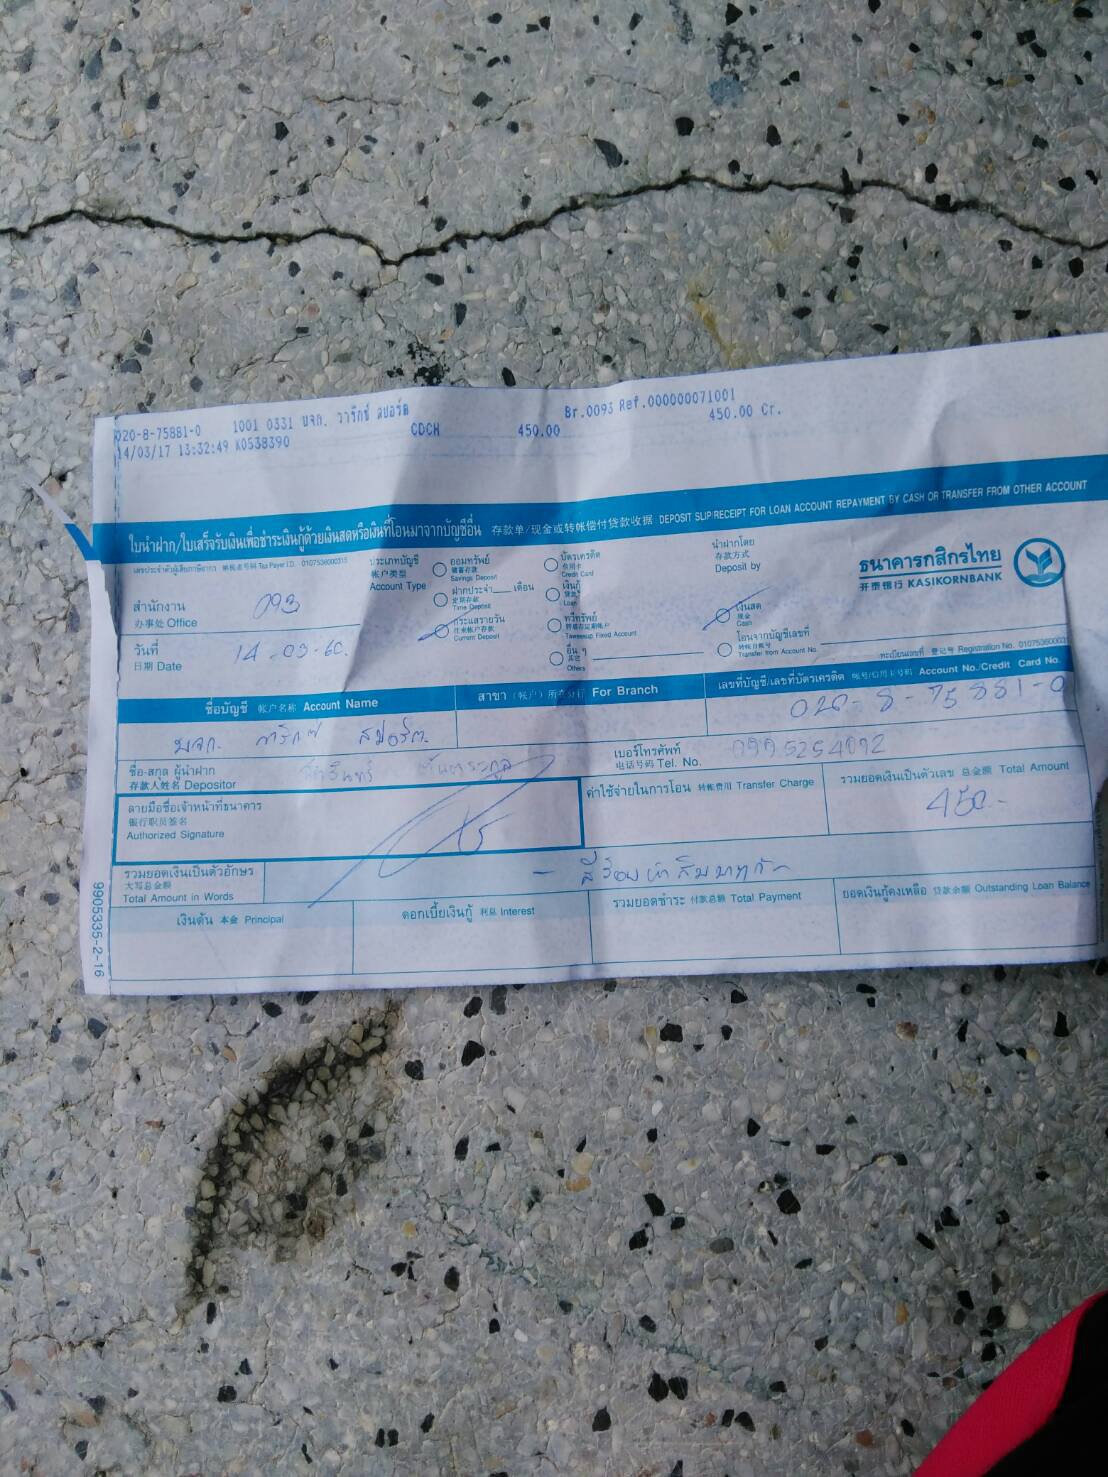 020-8-75881-0 1001 0331 บจก. วาริกซ์ สปอร์ต Br.0093 Ref.000000071001
14/03/17 13:32:49 K0538390 CDCH 450.00 450.00 Cr.
ใบนำฝาก/ใบเสร็จรับเงินเพื่อชำระเงินกู้ด้วยเงินสดหรือเงินที่โอนมาจากบัญชีอื่น 存款单/现金或转帐偿付贷款收据 DEPOSIT SLIP/RECEIPT FOR LOAN ACCOUNT REPAYMENT BY CASH OR TRANSFER FROM OTHER ACCOUNT
เลขประจำตัวผู้เสียภาษีอากร 纳税者号码 Tax Payer I.D. 0107536000315
ประเภทบัญชี
帐户类型
Account Type
ออมทรัพย์
储蓄存款
Savings Deposit
ฝากประจำ เดือน
定期存款
Time Deposit
กระแสรายวัน
往来帐户存款
Current Deposit
บัตรเครดิต
信用卡
Credit Card
เงินกู้
贷款
Loan
ทวีทรัพย์
Taweesup Fixed Account
อื่น ๆ
其它
Others
นำฝากโดย
存款方式
Deposit by
เงินสด
现金
Cash
โอนจากบัญชีเลขที่
转帐自账号
Transfer from Account No.
ธนาคารกสิกรไทย
开泰银行 KASIKORNBANK
ทะเบียนเลขที่ 登记号 Registration No. 0107536000315
สำนักงาน
办事处 Office 093
วันที่
日期 Date 14-03-60.
ชื่อบัญชี 帐户名称 Account Name
สาขา (帐户) 所在分行 For Branch
เลขที่บัญชี/เลขที่บัตรเครดิต 帐号/信用卡号码 Account No./Credit Card No.
บจก. วาริกซ์ สปอร์ต.
020-8-75881-0
ชื่อ-สกุล ผู้นำฝาก
存款人姓名 Depositor
เบอร์โทรศัพท์
电话号码 Tel. No. 0995254092
ลายมือชื่อเจ้าหน้าที่ธนาคาร
银行职员签名
Authorized Signature
ค่าใช้จ่ายในการโอน 转帐费用 Transfer Charge
รวมยอดเงินเป็นตัวเลข 总金额 Total Amount
450.-
รวมยอดเงินเป็นตัวอักษร
大写总金额
Total Amount in Words
- สี่ร้อยห้าสิบบาทถ้วน
เงินต้น 本金 Principal
ดอกเบี้ยเงินกู้ 利息 Interest
รวมยอดชำระ 付款总额 Total Payment
ยอดเงินกู้คงเหลือ 贷款余额 Outstanding Loan Balance
9905335-2-16